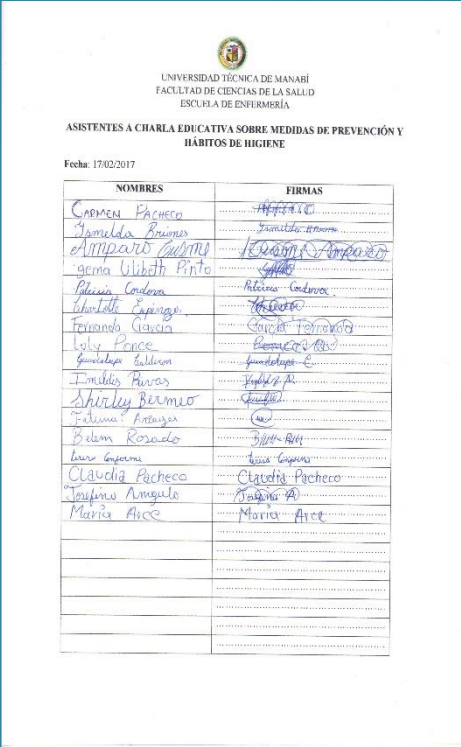 UNIVERSIDAD TÉCNICA DE MANABÍ
FACULTAD DE CIENCIAS DE LA SALUD
ESCUELA DE ENFERMERÍA
ASISTENTES A CHARLA EDUCATIVA SOBRE MEDIDAS DE PREVENCIÓN Y
HÁBITOS DE HIGIENE
Fecha: 17/02/2017
NOMBRES FIRMAS
CARMEN PACHECO
Ismelda Briones Ismelda
Amparo Briones Amparo
gema Lilibeth Pinto
Patricia Cordova Patricia Cordova
Charlotte Espinoza
Fernando Garcia Garcia Fernando
Loly Ponce
Guadalupe Calderon Guadalupe C
Imeldis Rivas
Shirley Bermeo
Fatima
Belem Rosado
Claudia Pacheco Claudia Pacheco
Josefina Angulo Josefina A
Maria Arce Maria Arce